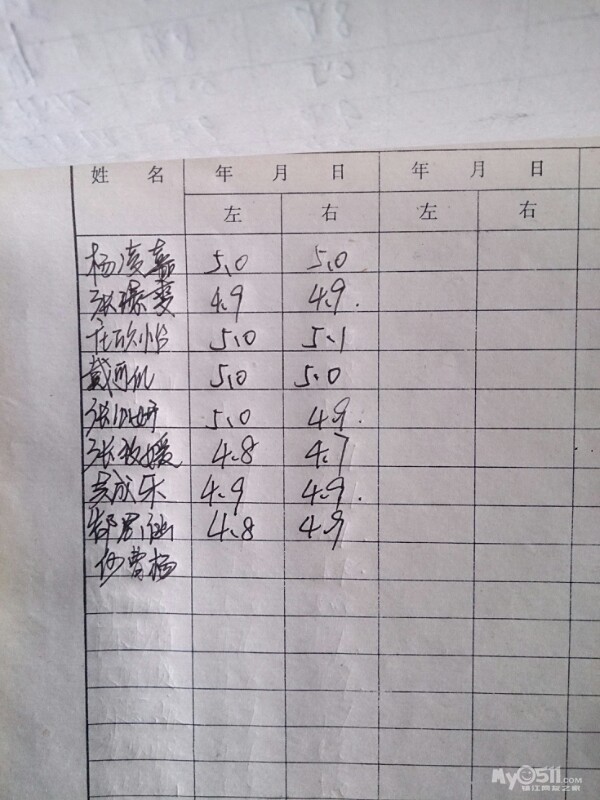 姓 名 年 月 日 年 月 日
左 右 左 右
杨凌嘉 5.0 5.0
张 4.9 4.9.
5.0 5.1
戴 5.0 5.0
张 妍 5.0 4.9.
张 媛 4.8 4.7
吴成乐 4.9 4.9.
郁君涵 4.8 4.9
曹杨
My0511.com
镇江网友之家